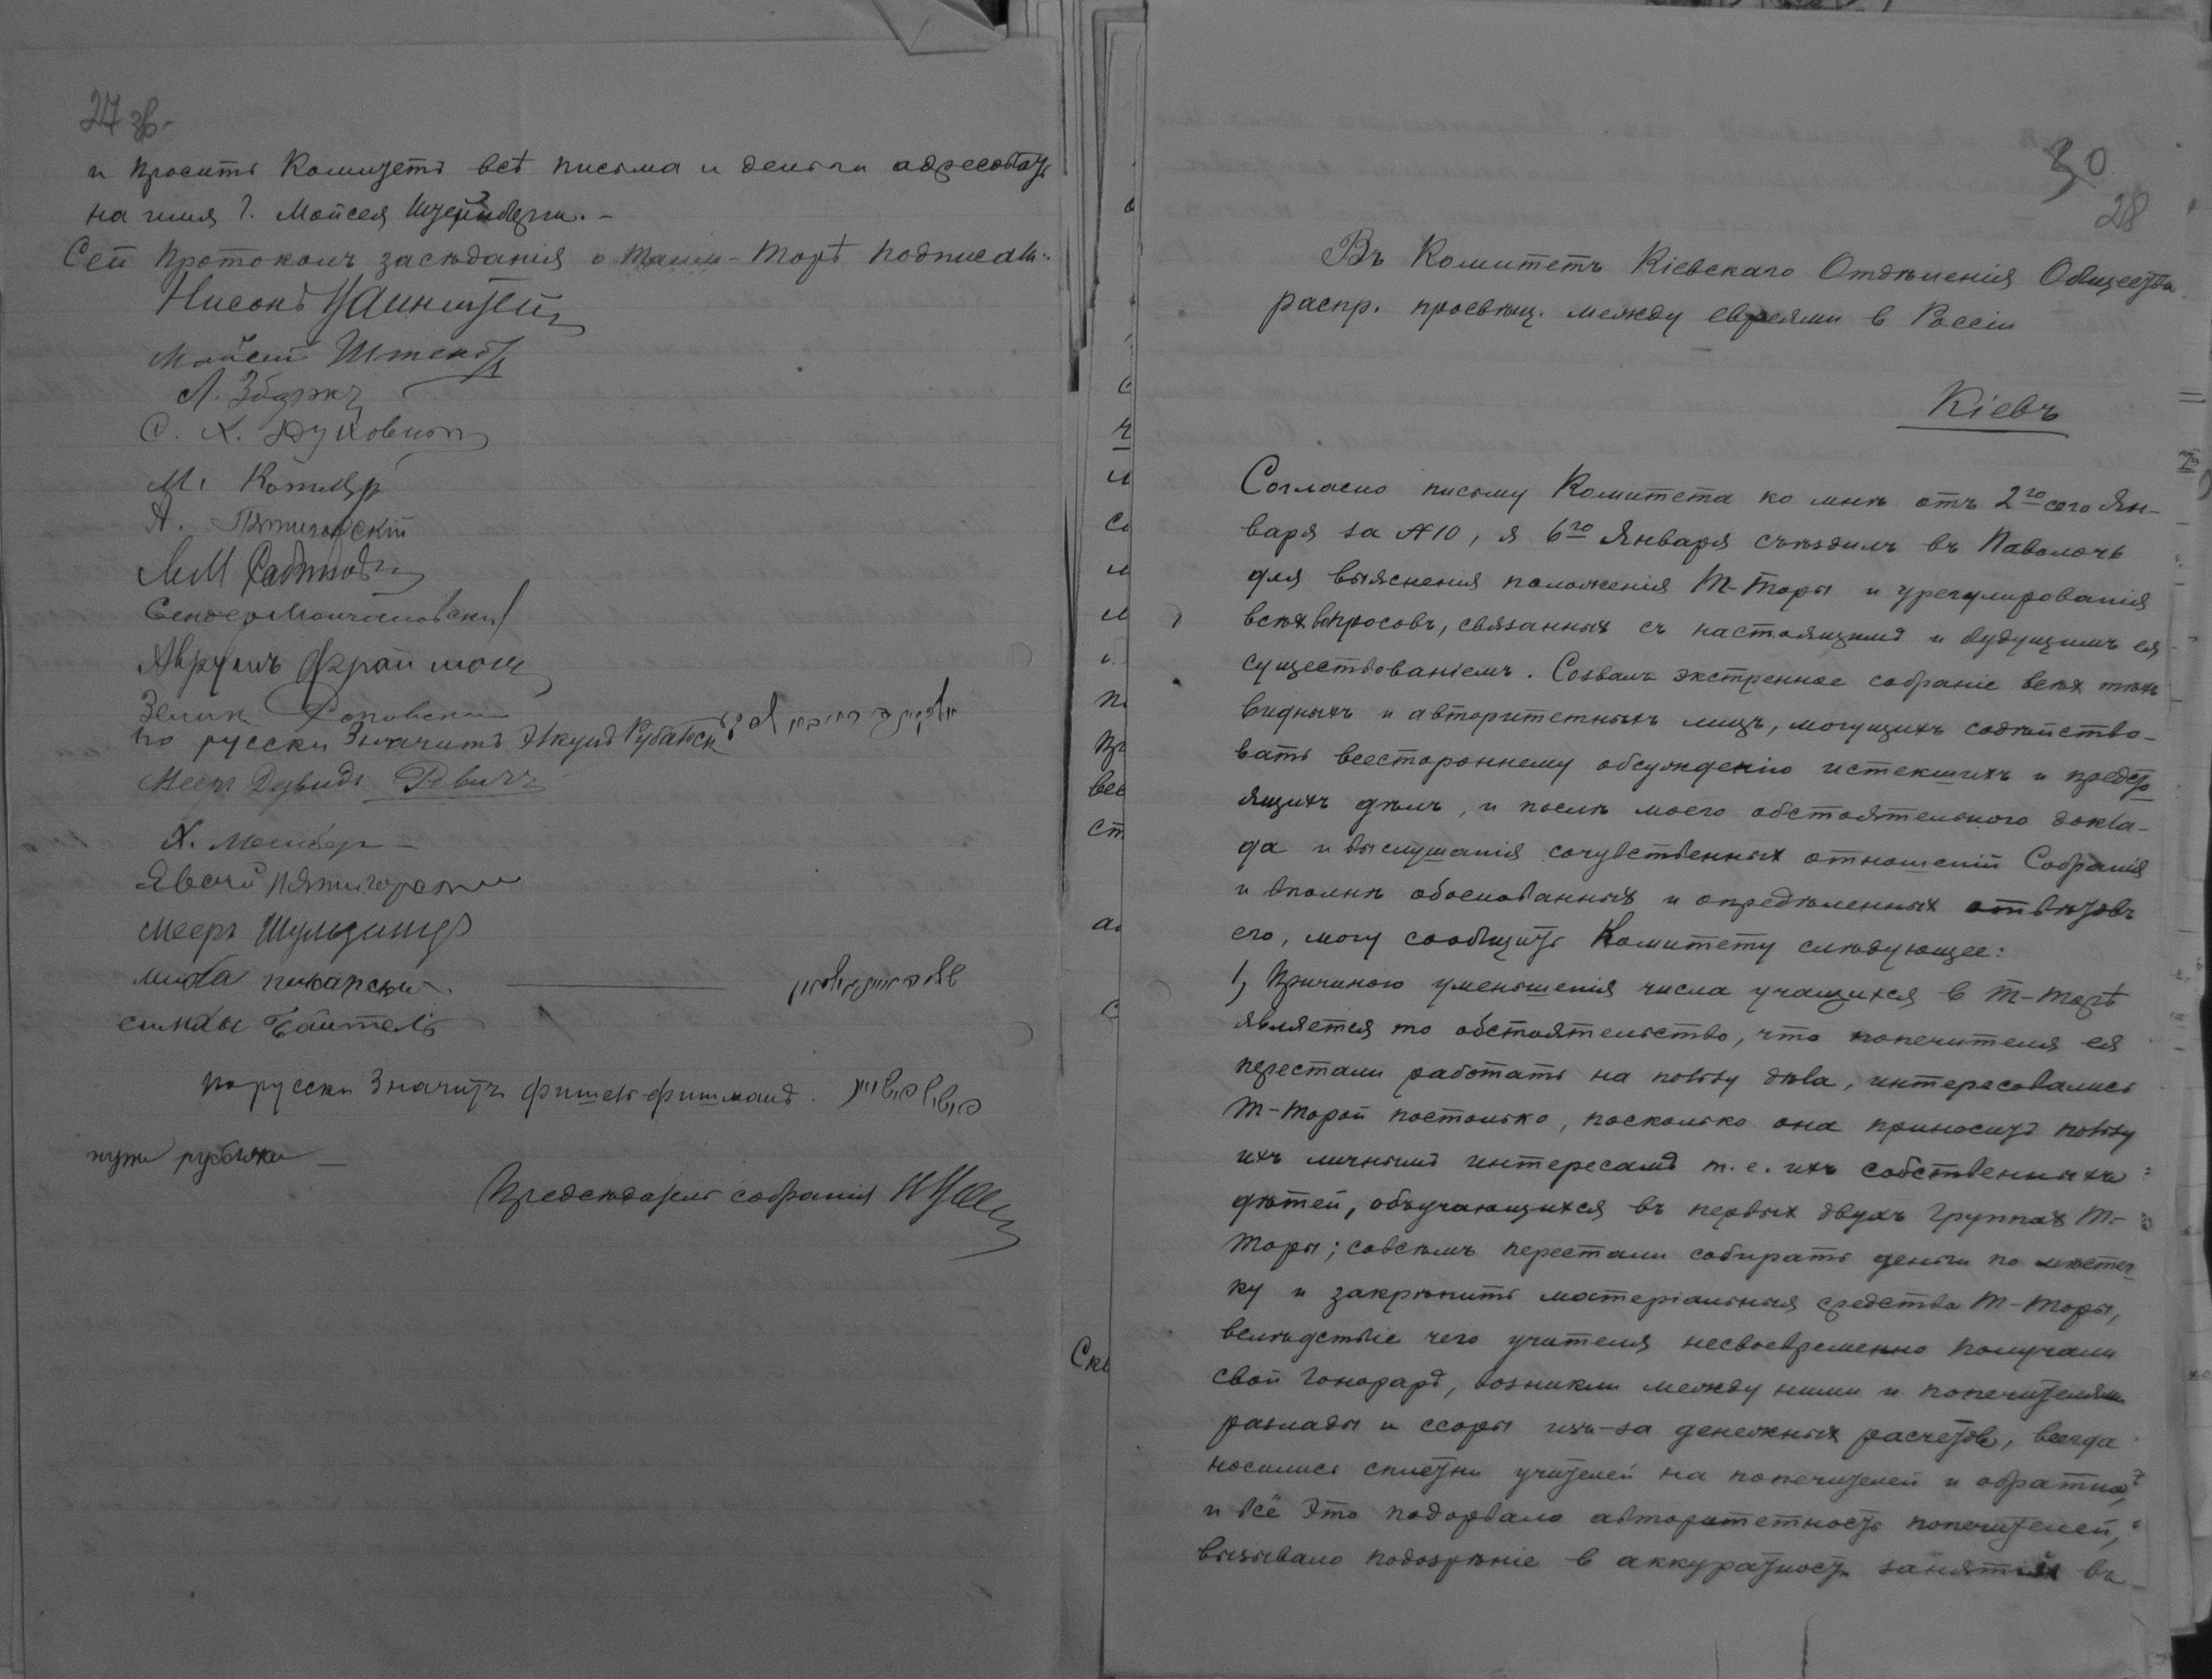 27 зв.
и просить Комитетъ всѣ письма и деньги адресовать
на имя Г. Мойсея Штейнберга. -
Сей протоколъ засѣданія о Талм-Торѣ подписали:
Нисонъ Вайнштейн
Мойсей
Л. Збарж
С. Х. Духовном
М. Котляр
А. Пятигорскій
Рабинов
Сендер Молчановский
Аврумъ Фрайман
Зелик
по русски значитъ Янкулъ
Мееръ Давидъ
Х.
Явсей Пятигорск
Мееръ Шульдинер
либа
симха Байтель
по русски значитъ фишель-фишманъ. פישיל פישמאן
нута рубачка
Предсѣдатель собранія
30
28
Въ Комитетъ Кіевскаго Отдѣленія Общества
распр. просвѣщ. между евреями в Россіи
Кіевъ
Согласно письму Комитета ко мнѣ отъ 2го сего Ян-
варя за №10, я 6го Января съѣздилъ въ Паволочь
для выясненія положенія Т-Торы и урегулированія
всѣх вопросовъ, связанных съ настоящимъ и будущимъ ея
существованіемъ. Созвалъ экстренное собраніе всѣх тѣхъ
видныхъ и авторитетныхъ лицъ, могущихъ содѣйство-
вать всестороннему обсужденію истекшихъ и предсто
ящихъ дѣлъ, и послѣ моего обстоятельного докла-
да и выслушанія сочувственных отношеній Собранія
и вполнѣ обоснованных и опредѣленных отвѣтовъ
его, могу сообщить Комитету слѣдующее:
1, Причиною уменьшенія числа учащихся в Т-Торѣ
является то обстоятельство, что попечителя ея
перестали работать на пользу дѣла, интересовались
Т-Торой постолько, посколько она приноситъ пользу
ихъ личнымъ интересамъ т. е. ихъ собственныхъ
дѣтей, обучающихся въ первых двухъ группах Т.-
Торы; совсѣмъ перестали собирать деньги по мѣстеч
ку и закрѣпить матеріальныя средства Т-Торы,
вслѣдствіе чего учителя несвоевременно получали
свой гонораръ, возникли между ними и попечителями
разлады и ссоры изъ-за денежных расчетовъ, всегда
носились сплетни учителей на попечителей и обратно,
и всё это подорвало авторитетность попечителей,
вызывало подозрѣніе в аккуратность занятій въ